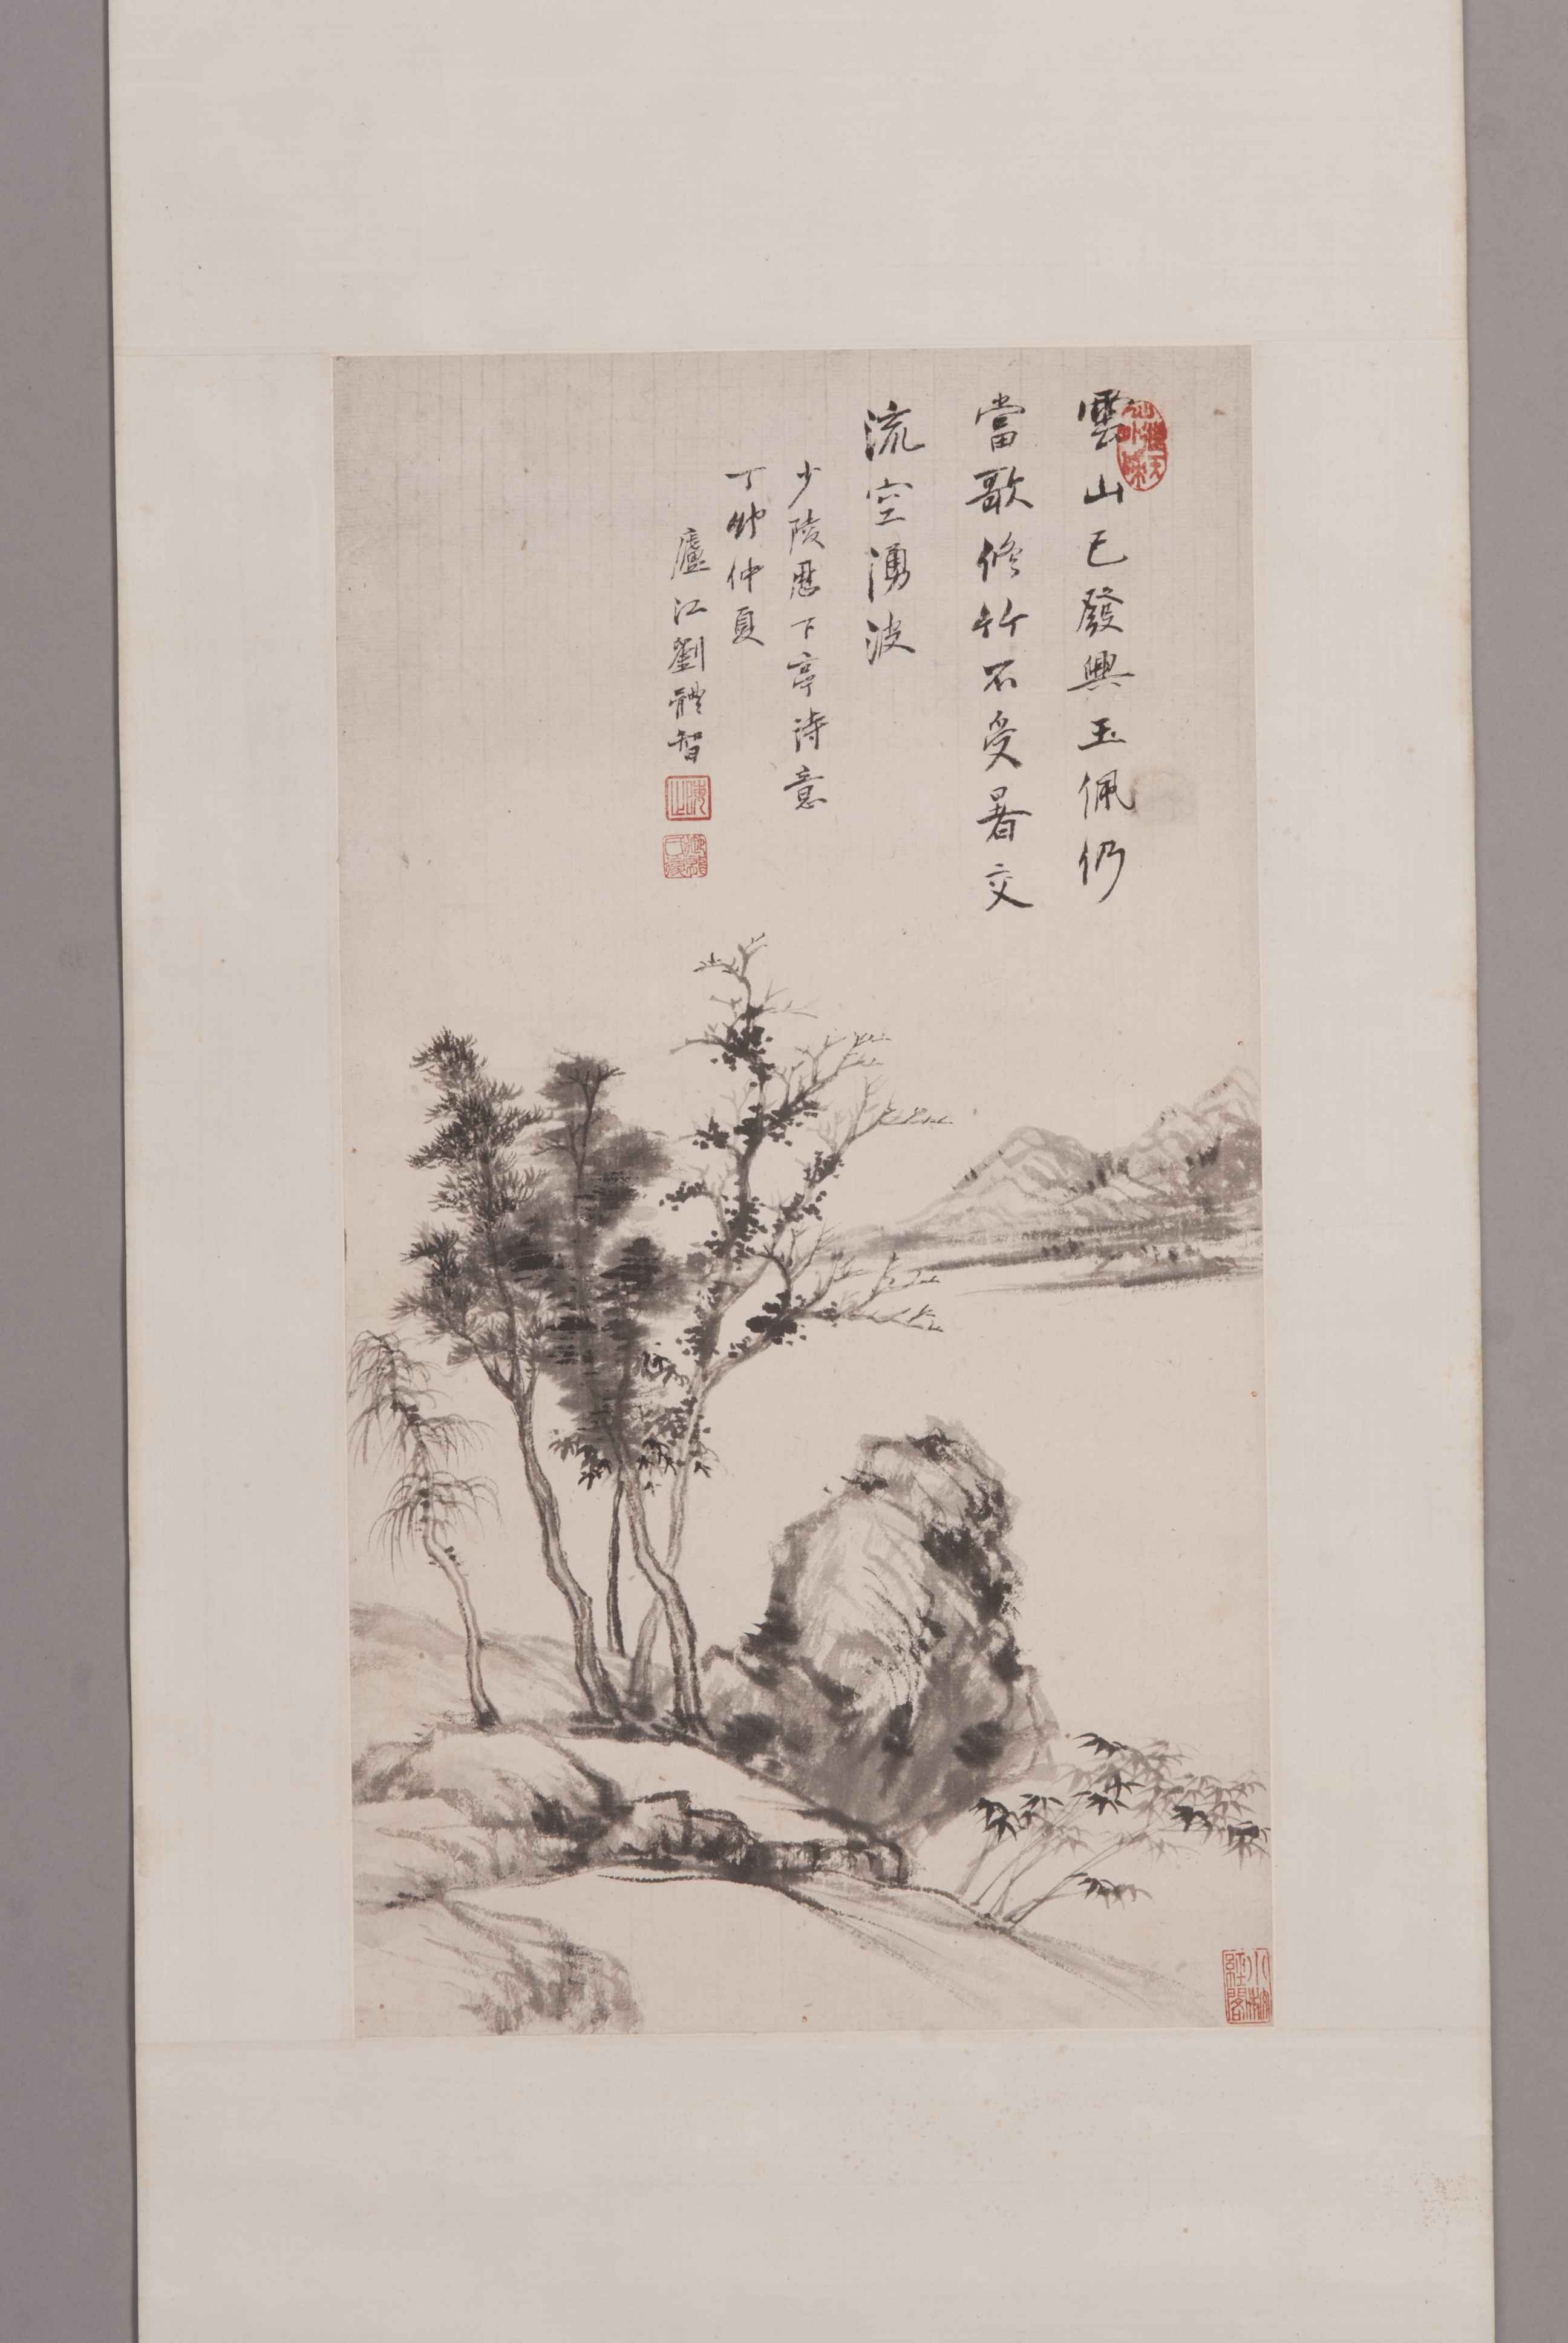 雲山已發興玉佩仍
當歌修竹不受暑交
流空湧波
少陵歷下亭詩意
丁卯仲夏
廬江劉體智